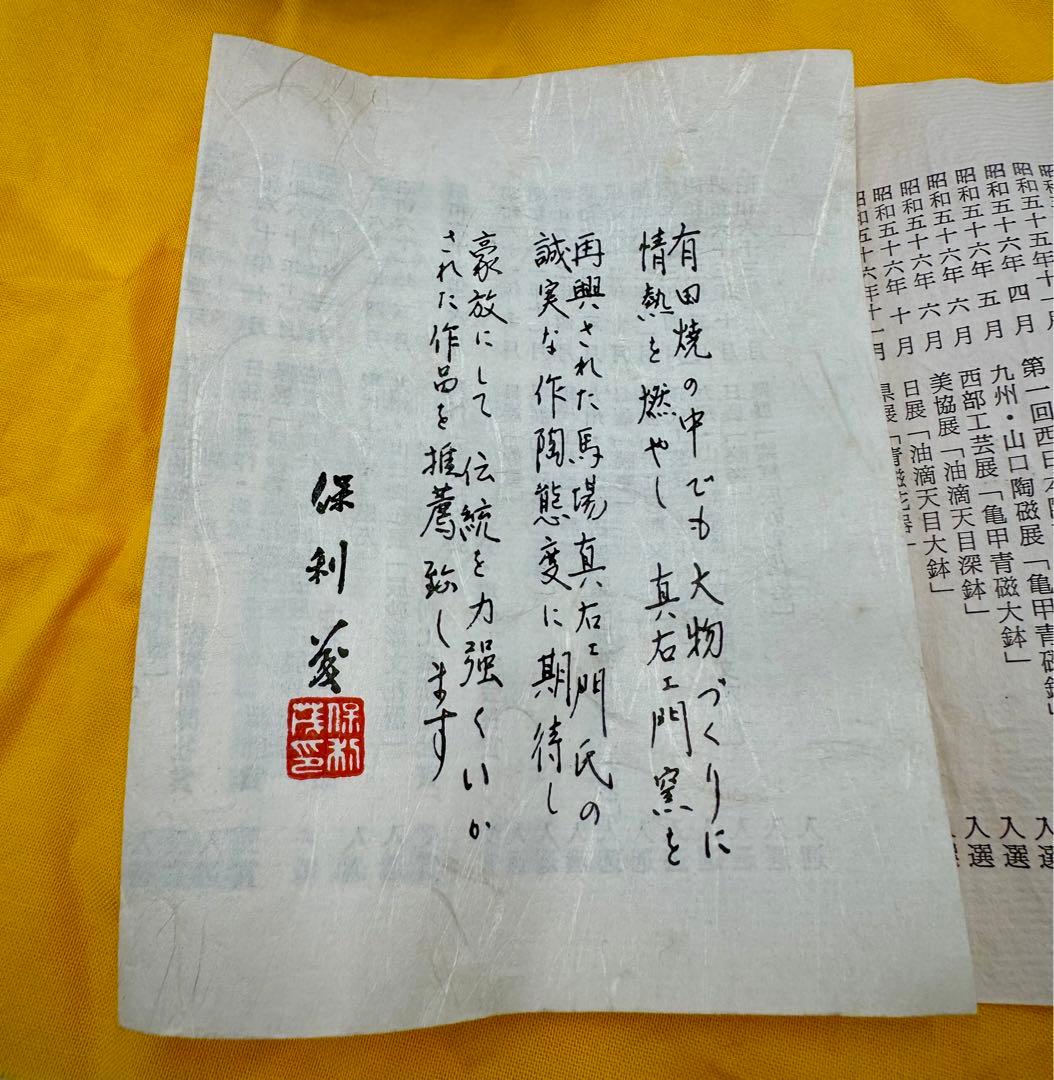 昭和五十五年十一月
昭和五十六年 四月
昭和五十六年 五月
昭和五十六年 六月
昭和五十六年 六月
昭和五十六年 十月
昭和五十六年十一月
第一回西日本陶
九州・山口陶磁展「亀甲青磁鉢」
西部工芸展「亀甲青磁大鉢」
美協展「油滴天目深鉢」
日展「油滴天目大鉢」
県展「青磁花器」
入選
入選
入選
入選
有田焼の中でも大物づくりに
情熱を燃やし 真右エ門窯を
再興された馬場真右エ門氏の
誠実な作陶態度に期待し
豪放にして伝統を力強くいか
された作品を推薦致します
保利茂
保利
茂印